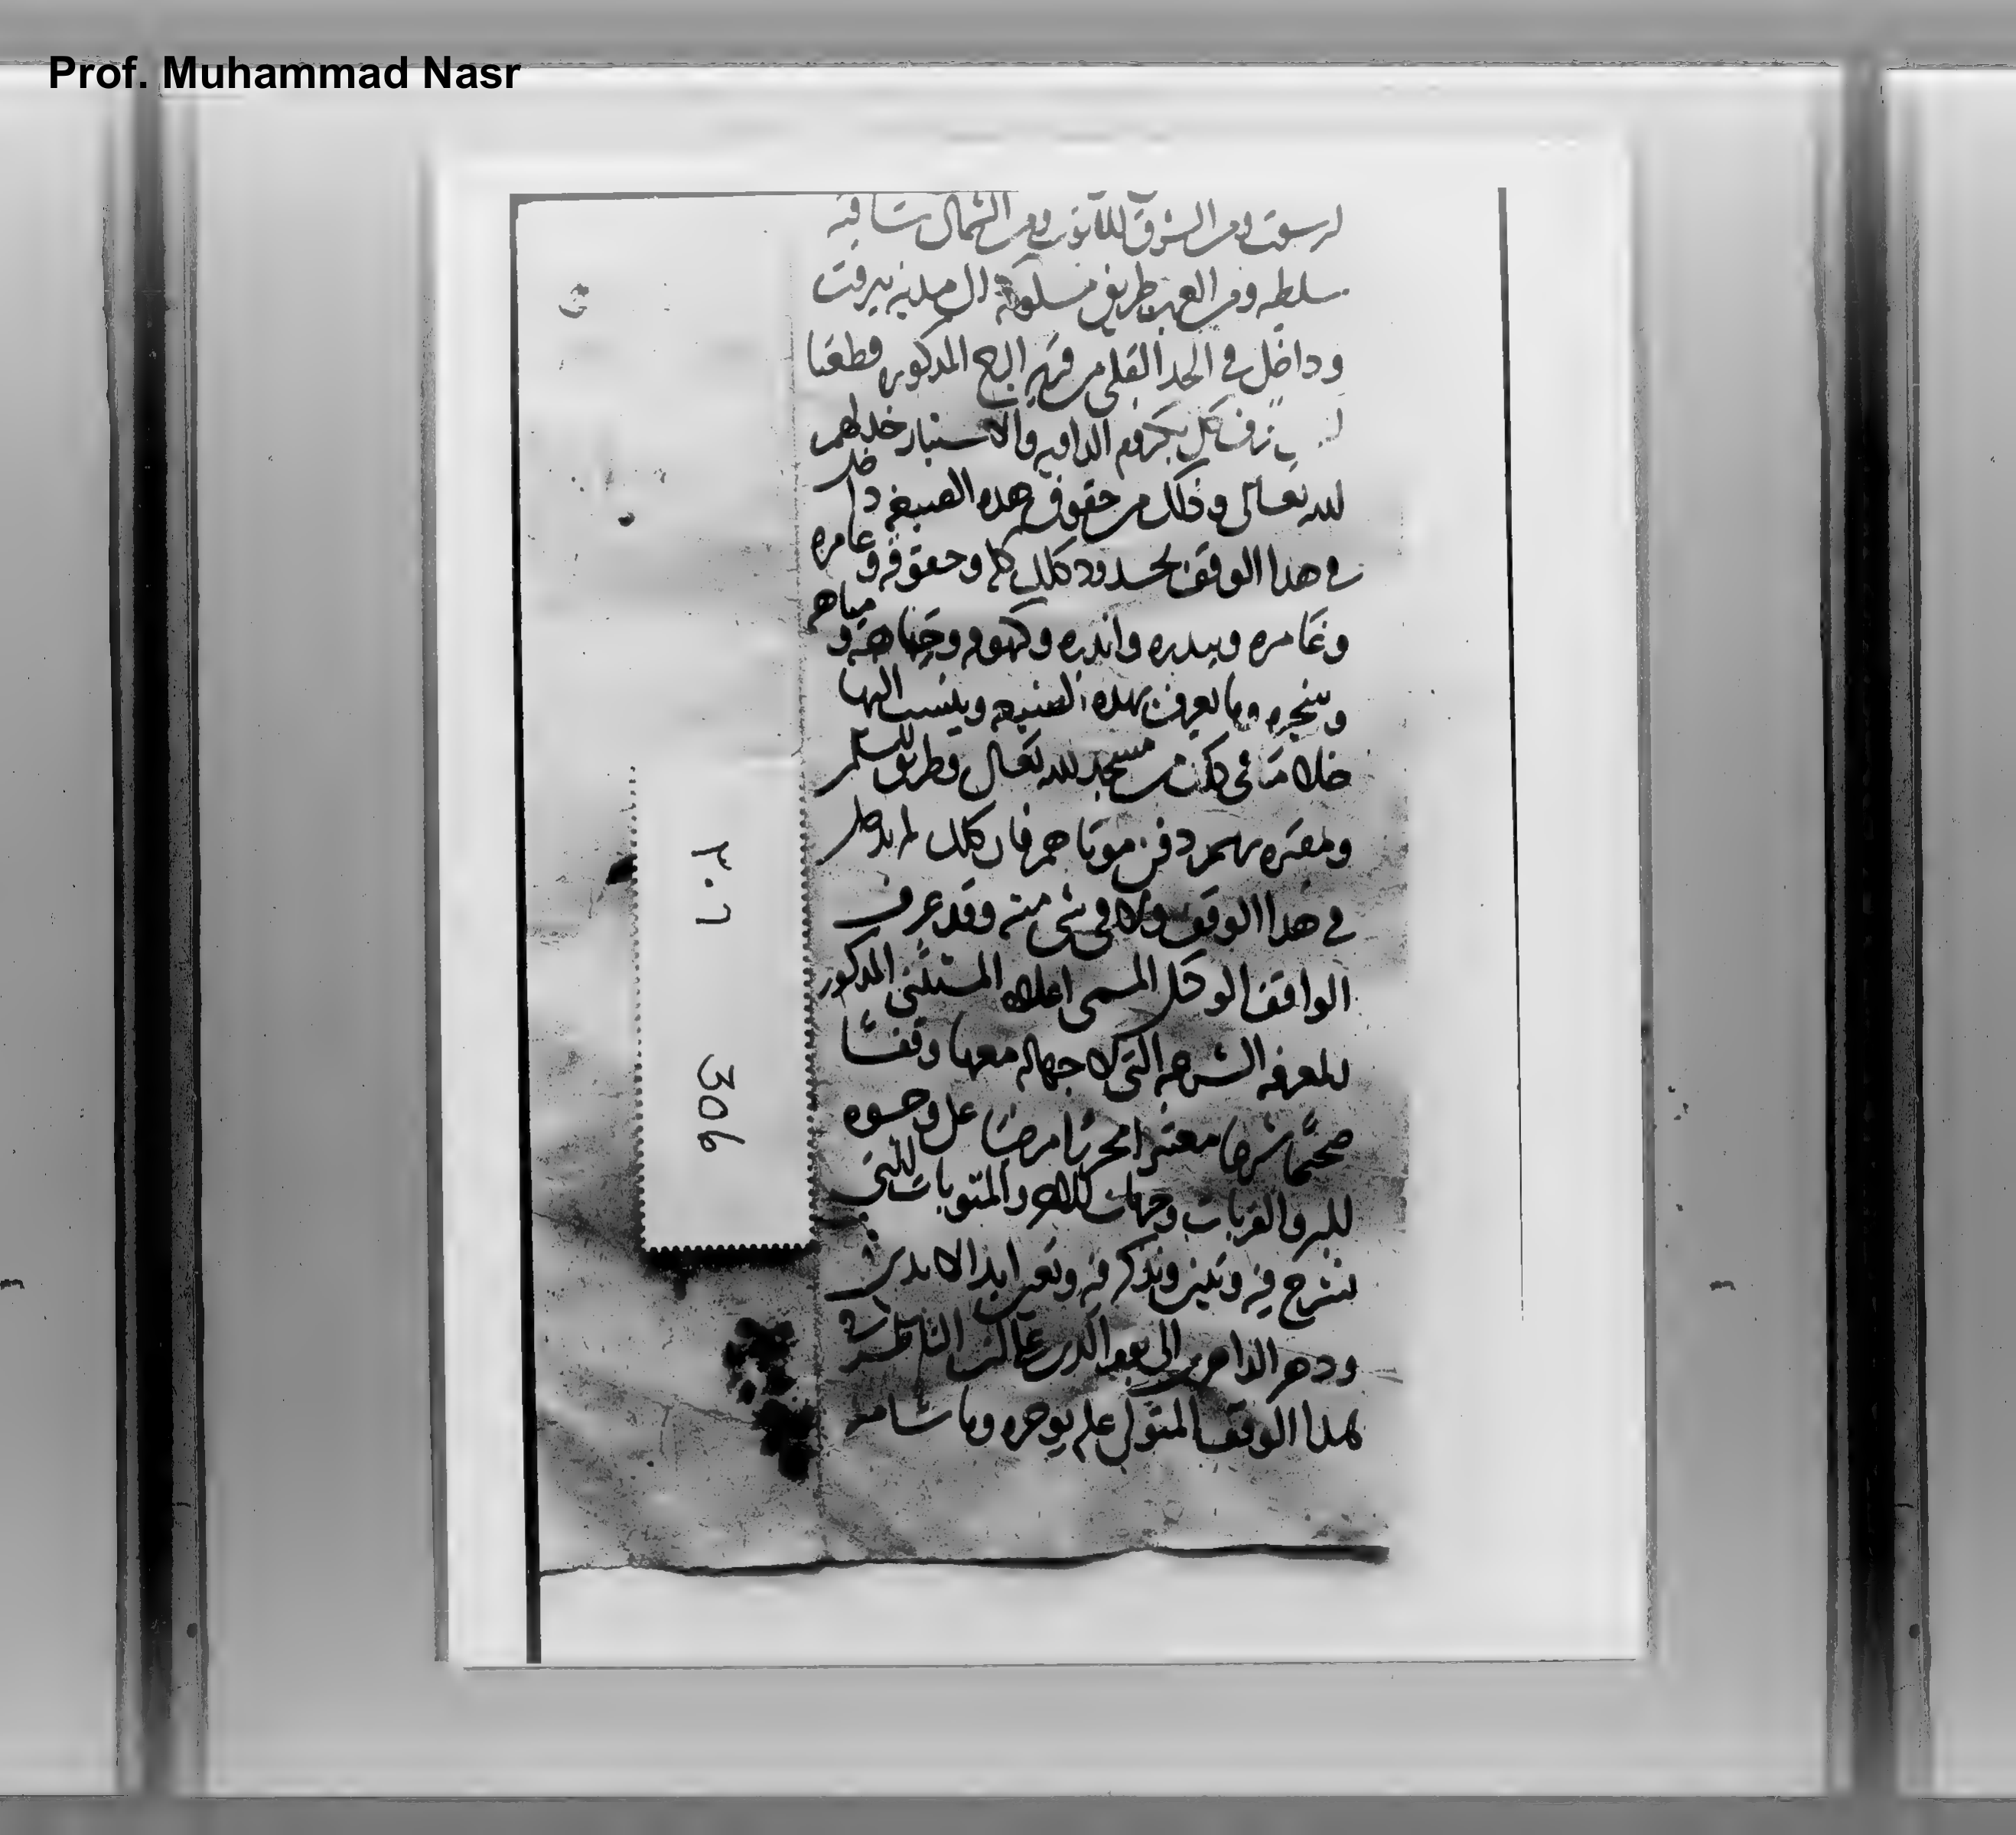 Prof. Muhammad Nasr
ومن الشرق ومن الشمال ساقيه
سلطه ومن الغرب طريق مسلوكة الى مدينه بيروت
وداخل في الحد القبلي من قريه المذكوره قطعتا
الداويه والاسبتار
لله تعالى وذلك من حقوق هذه الضيعه داخل
في هذا الوقف بحدود ذلك كله وحقوقه وعامره
وغامره وبيدره واندره وكهوفه ومياهه
وشجره وما يعرف بهذه الضيعه وينسب اليها
خلا ما في ذلك من مسجد لله تعالى وطريق للمسلمين
ومقبره برسم دفن موتاهم فان ذلك لم يدخل
في هذا الوقف ولا في شي منه وقد عرف
الواقف الوكيل المسمى اعلاه المستثنى المذكور
المعرفه الشرعيه التي لا جهاله معها وقفا
صحيحا شرعيا معتبرا محررا مرضيا على وجوه
البر والقربات وجهات والمثوبات التي
تشرح فيه وتبين وتذكر فيه وتعين ابد الابدين
ودهر الداهرين الناظر في
هذا الوقف المتولي عليه يوجره وما شا منه
٣٠٦
306